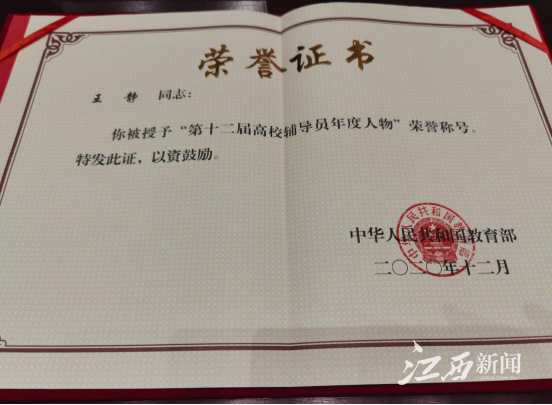 荣誉证书
王 静 同志：
你被授予“第十二届高校辅导员年度人物”荣誉称号。
特发此证，以资鼓励。
中华人民共和国教育部
二〇二〇年十二月
中华人民共和国教育部
江西新闻